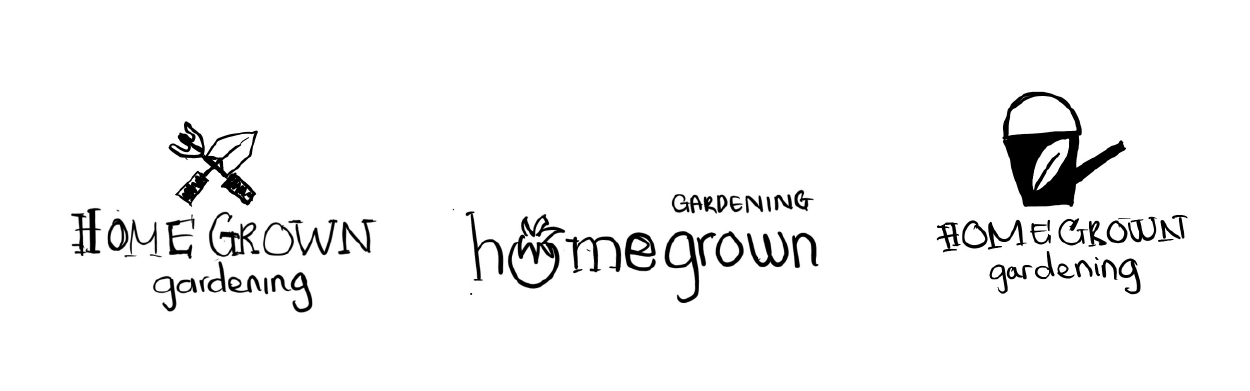 HOME GROWN
gardening
GARDENING
homegrown
HOME GROWN
gardening